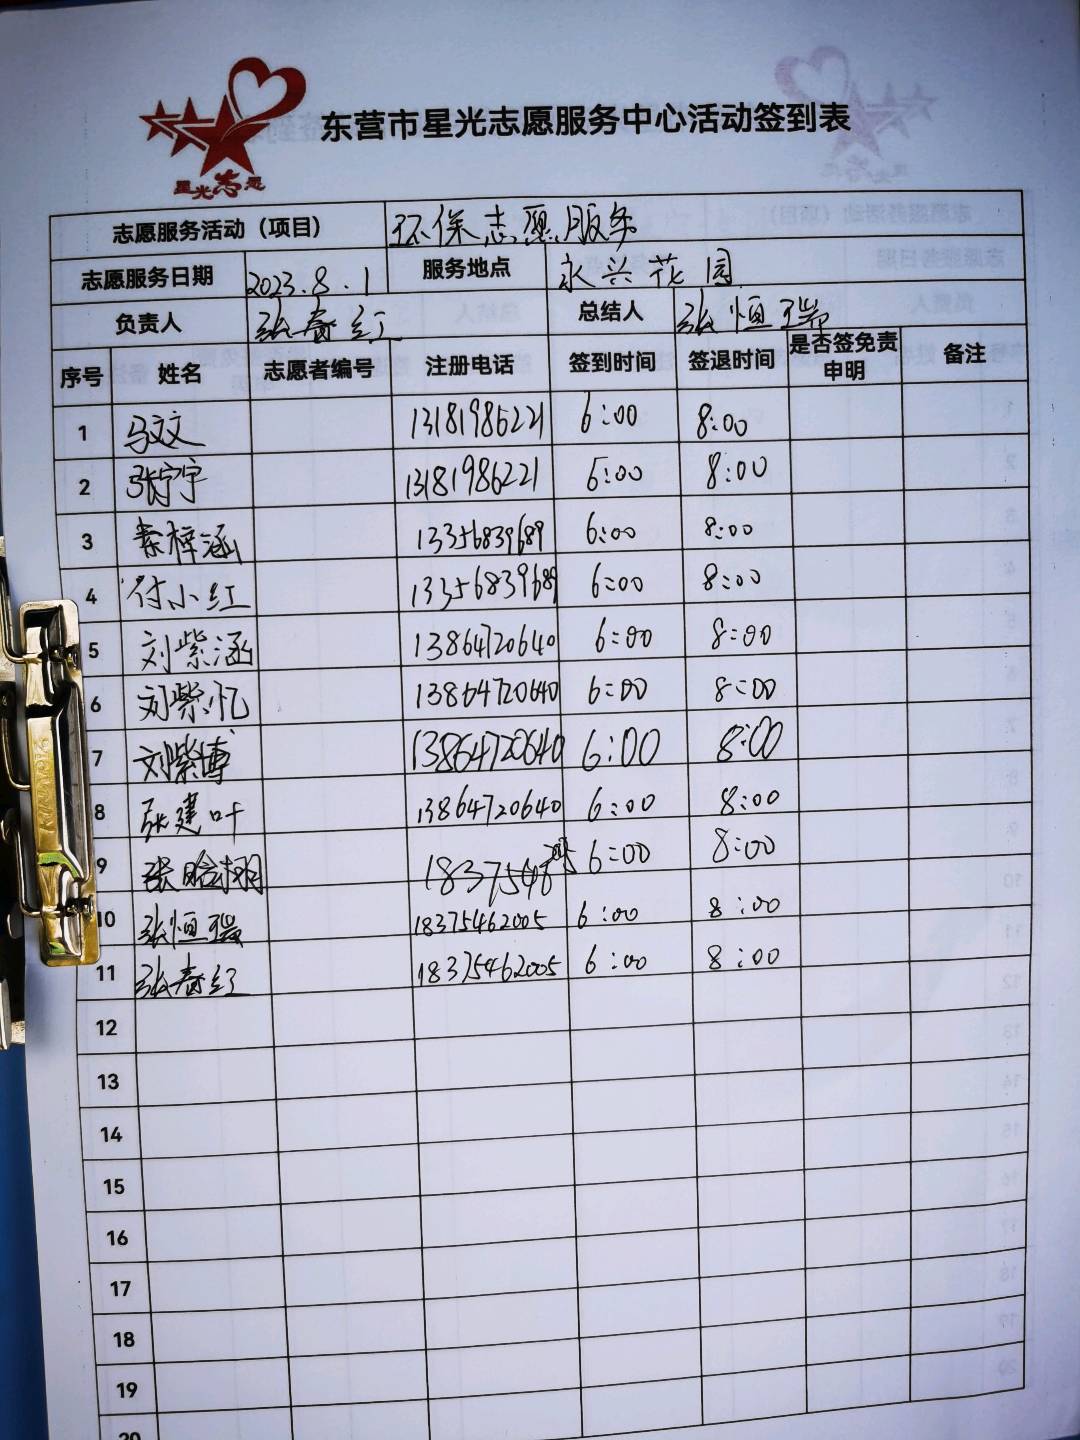 星光志愿
东营市星光志愿服务中心活动签到表
志愿服务活动（项目） 环保志愿服务
志愿服务日期 2023.8.1 服务地点 永兴花园
负责人 张春红 总结人 张恒瑞
序号 姓名 志愿者编号 注册电话 签到时间 签退时间 是否签免责申明 备注
1 马文文 13181986221 6:00 8:00
2 张宁宇 13181986221 6:00 8:00
3 秦梓涵 13356839689 6:00 8:00
4 付小红 13356839689 6:00 8:00
5 刘紫涵 13864720640 6:00 8:00
6 刘紫忆 13864720640 6:00 8:00
7 刘紫博 13864720640 6:00 8:00
8 张建叶 13864720640 6:00 8:00
9 张晗栩 6:00 8:00
10 张恒瑞 18375462005 6:00 8:00
11 张春红 18375462005 6:00 8:00
12
13
14
15
16
17
18
19
20